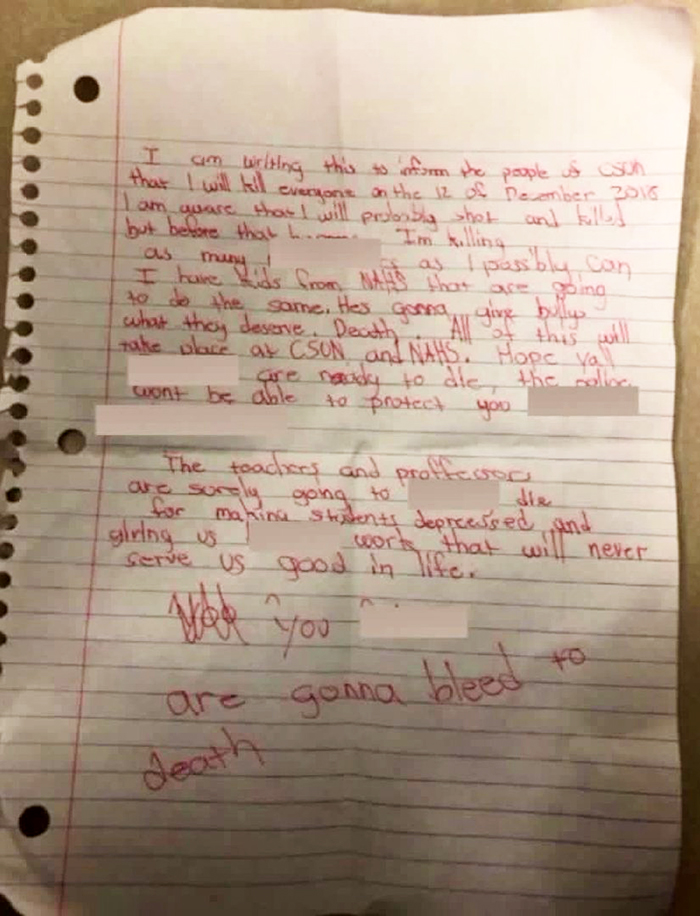 I am writing this to inform the people of CSON
that I will kill everyone on the 12 of December 2016
I am aware that I will probably shot and killed
but before that I'm killing
as many as I possibly can
I have kids from NAHS that are going
to do the same. Hes gonna give bullys
what they deserve. Death. All of this will
take place at CSON and NAHS. Hope yall
are ready to die, the police
wont be able to protect you
The teachers and proffessors
are surely going to die
for making students depressed and
giving us work that will never
serve us good in life.
you
are gonna bleed to
death